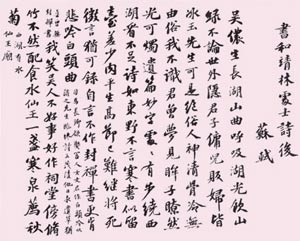 書和靖林處士詩後
蘇軾
吳儂生長湖山曲呼吸湖光飲山
綠不論世外隱君子傭兒販婦皆
冰玉先生可是絕俗人神清骨冷無
由俗我不識君曾夢見眸子瞭然
光可燭遺篇妙字處處有步繞西
湖看不足詩如東野不言寒書似留
臺差少肉平生高節已難繼將死
微言猶可錄自言不作封禪書更肯
悲吟白頭曲
我笑吳人不好事好作祠堂傍修
竹不然配食水仙王一盞寒泉薦秋
菊 西湖有水
仙王廟